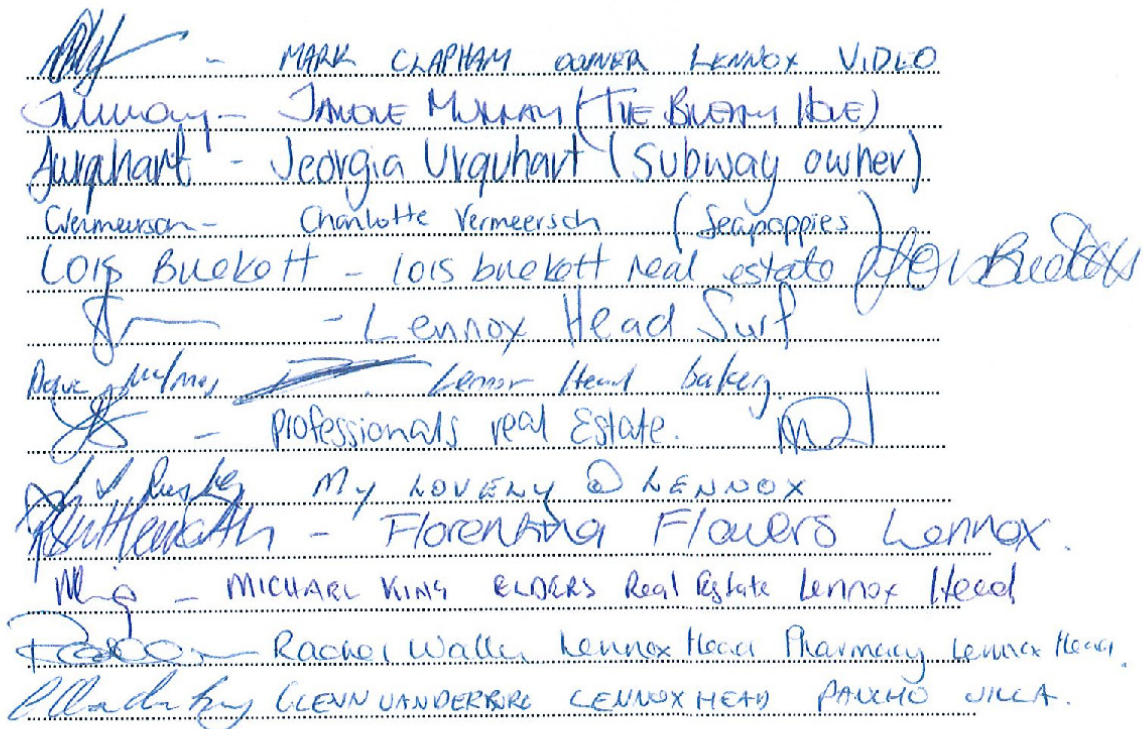 - MARK CLAPHAM OWNER LENNOX VIDEO
JMurray - JANONE MURRAY (THE BREATH HOVE)
Jurquhart - Jeorgia Urquhart (Subway owner)
CVermeersch - Charlotte Vermeersch (Seapoppies)
LOIS BUCKETT - lois buckett real estate Lois Buckett
- Lennox Head Surf
Dave Lennox Head bakery
- Professionals real Estate.
My LOVELY @ LENNOX
- Florentina Flowers Lennox.
- MICHAEL KING ELDERS Real Estate Lennox Head
Rachel Waller Lennox Head Pharmacy Lennox Head.
GLENN VANDERBURG LENNOX HEAD PANCHO VILLA.